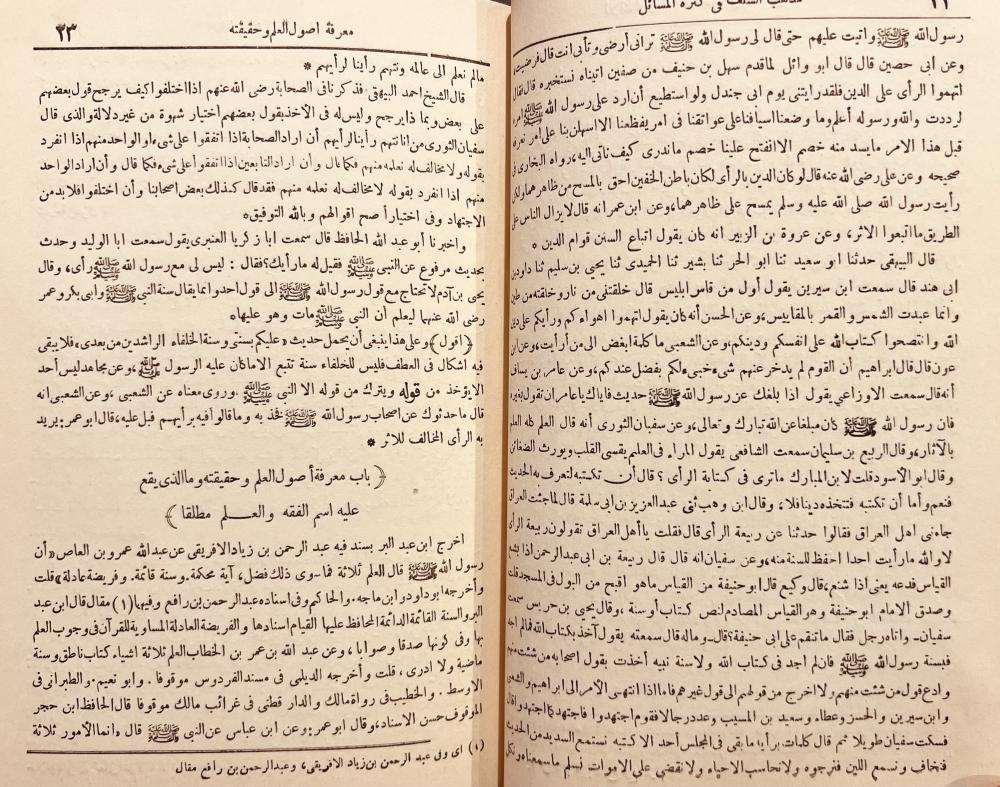 مذهب السلف فى كثرة المسائل
رسول الله ﷺ واتيت عليهم حتى قال لى رسول الله ﷺ ترانى أرضى وتأبى انت قال فرضيت،
وعن ابى حصين قال قال ابو وائل لما قدم سهل بن حنيف من صفين اتيناه نستخبره قال فقال
اتهموا الرأى على الدين فلقد رايتنى يوم ابى جندل ولو استطيع أن ارد على رسول الله ﷺ امره
لرددت والله ورسوله أعلم وما وضعنا اسيافنا على عواتقنا فى امر يفظعنا الا اسهلن بنا على امر نعرفه
قبل هذا الامر مايسد منه خصم الا انفتح علينا خصم ماندرى كيف نأتى اليه، رواه البخارى فى
صحيحه وعن على رضى الله عنه قال لو كان الدين بالرأى لكان باطن الخفين احق بالمسح من ظاهرهما، ولكن
رأيت رسول الله صلى الله عليه وسلم يمسح على ظاهرهما، وعن ابن عمر انه قال لايزال الناس على
الطريق ما اتبعوا الاثر، وعن عروة بن الزبير انه كان يقول اتباع السنن قوام الدين *
قال البيهقى حدثنا ابو سعيد ثنا ابو الحر ثنا بشير ثنا الحميدى ثنا يحيى بن سليم ثنا داود بن
ابى هند قال سمعت ابن سيرين يقول أول من قاس ابليس قال خلقتنى من نار وخلقته من طين
وانما عبدت الشمس والقمر بالمقاييس، وعن الحسن أنه كان يقول اتهموا اهواءكم ورأيكم على دين
الله وانتصحوا كتاب الله على انفسكم ودينكم، وعن الشعبى ما كلمة ابغض الى من أرأيت، وعن ابن
عون قال قال ابراهيم أن القوم لم يدخر عنهم شىء خبىء لكم بفضل عندكم، وعن عامر بن يساف
أنه قال سمعت الاوزاعى يقول اذا بلغك عن رسول الله ﷺ حديث فاياك ياعامر ان تقول بغيره
فان رسول الله ﷺ كان مبلغا عن الله تبارك وتعالى، وعن سفيان الثورى أنه قال العلم كله العلم
بالآثار، وقال الربيع بن سليمان سمعت الشافعى يقول المراء فى العلم يقسى القلب ويورث الضغائن
وقال ابو الأسود قلت لابن المبارك ماترى فى كتابة الرأى ؟ قال أن تكتبه لتعرف به الحديث
فنعم وأما أن تكتبه فتتخذه دينا فلا، وقال ابن وهب ثنى عبد العزيز بن ابى سلمة قال لما جئت العراق
جاءنى اهل العراق فقالوا حدثنا عن ربيعة الرأى قال فقلت يا أهل العراق تقولون ربيعة الرأى
لا والله ما رأيت احدا احفظ للسنة منه، وعن سفيان انه قال قال ربيعة بن ابى عبد الرحمن اذا بشع
القياس فدعه يعنى اذا شنع، قال وكيع قال ابو حنيفة من القياس ماهو اقبح من البول فى المسجد قلت
وصدق الامام ابو حنيفة وهو القياس المصادم لنص كتاب أو سنة ، وقال يحيى بن حريس سمعت
سفيان ـ واتاه رجل فقال ماتنقم على ابى حنيفة؟ قال ـ وماله قال سمعته يقول آخذ بكتاب الله فما لم اجد
فبسنة رسول الله ﷺ فان لم اجد فى كتاب الله ولا سنة نبيه أخذت بقول اصحابه من شئت منهم
وادع قول من شئت منهم ولا اخرج من قولهم الى قول غيرهم فاما اذا انتهى الأمر الى ابراهيم والشعبى
وابن سيرين والحسن وعطاء وسعيد بن المسيب وعدد رجالا فقوم اجتهدوا فاجتهد كما اجتهدوا قال
فسكت سفيان طويلا ثم قال كلمات برأيه ما بقى فى المجلس أحد الا كتبه نستمع السديد من الحديث
فنخاف ونسمع اللين فنرجوه ولا نحاسب الاحياء ولا نقضى على الاموات نسلم ما سمعناه ونكل
معرفة اصول العلم وحقيقته ٢٣
مالم نعلم الى عالمه ونتهم رأينا لرأيهم *
قال الشيخ احمد البيهقى فذكرنا فى الصحابة رضى الله عنهم اذا اختلفوا كيف يرجح قول بعضهم
على بعض وبما ذا يرجح وليس له فى الاخذ بقول بعضهم اختيار شهوة من غير دلالة والذى قال
سفيان الثورى من انا نتهم رأينا لرأيهم أن اراد الصحابة اذا اتفقوا على شىء او الواحد منهم اذا انفرد
بقوله ولا مخالف له نعلمه منهم فكما قال وأن اراد التابعين اذا اتفقوا على شىء فكما قال وأن اراد الواحد
منهم اذا انفرد بقوله لا مخالف له نعلمه منهم فقد قال كذلك بعض اصحابنا وأن اختلفوا فلا بد من
الاجتهاد وفى اختيار أصح اقوالهم وبالله التوفيق *
واخبرنا أبو عبد الله الحافظ قال سمعت ابا زكريا العنبرى يقول سمعت ابا الوليد وحدث
بحديث مرفوع عن النبى ﷺ فقيل له ما رأيك؟ فقال : ليس لى مع رسول الله ﷺ رأى، وقال
يحيى بن آدم لا تحتاج مع قول رسول الله ﷺ الى قول احد وانما يقال سنة النبى ﷺ وابى بكر وعمر
رضى الله عنهما ليعلم أن النبى ﷺ مات وهو عليها *
(أقول) وعلى هذا ينبغى أن يحمل حديث « عليكم بسنتى وسنة الخلفاء الراشدين من بعدى » فلا يبقى
فيه اشكال فى العطف فليس للخلفاء سنة تتبع الا ما كان عليه الرسول ﷺ، وعن مجاهد ليس أحد
الا يؤخذ من قوله ويترك من قوله الا النبى ﷺ. وروى معناه عن الشعبى ، وعن الشعبى انه
قال ما حدثوك عن اصحاب رسول الله ﷺ فخذ به وما قالوا فيه برأيهم فبل عليه، قال ابو عمر: يريد
به الرأى المخالف للاثر *
﴿ باب معرفة أصول العلم وحقيقته وما الذى يقع
عليه اسم الفقه والعـــلم مطلقا ﴾
اخرج ابن عبد البر بسند فيه عبد الرحمن بن زياد الافريقى عن عبد الله عمرو بن العاص « أن
رسول الله ﷺ قال العلم ثلاثة فما سوى ذلك فضل، آية محكمة. وسنة قائمة. وفريضة عادلة » قلت
وأخرجه ابو داود وابن ماجه. والحاكم وفى اسناده عبد الرحمن بن رافع وفيهما (١) مقال قال ابن عبد
البر والسنة القائمة الدائمة المحافظ عليها القيام اسنادها والفريضة العادلة المساوية للقرآن فى وجوب العلم
بها وفى كونها صدقا وصوابا، وعن عبد الله بن عمر بن الخطاب العلم ثلاثة اشياء كتاب ناطق وسنة
ماضية ولا ادرى ، قلت وأخرجه الديلمى فى مسند الفردوس موقوفا . وابو نعيم. والطبرانى فى
الاوسط . والخطيب فى رواة مالك والدار قطنى فى غرائب مالك موقوفا قال الحافظ ابن حجر
الموقوف حسن الاسناد، وقال ابو عمر: وعن ابن عباس عن النبى ﷺ قال « انما الأمور ثلاثة
(١) اى وفى عبد الرحمن بن زياد الافريقى، وعبد الرحمن بن رافع مقال